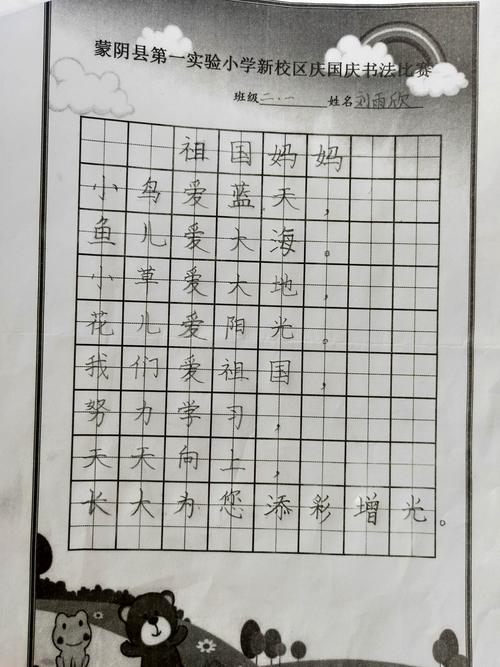 蒙阴县第一实验小学新校区庆国庆书法比赛
班级二.一 姓名刘雨欣
祖国妈妈
小鸟爱蓝天，
鱼儿爱大海。
小草爱大地，
花儿爱阳光。
我们爱祖国，
努力学习，
天天向上，
长大为您添彩增光。